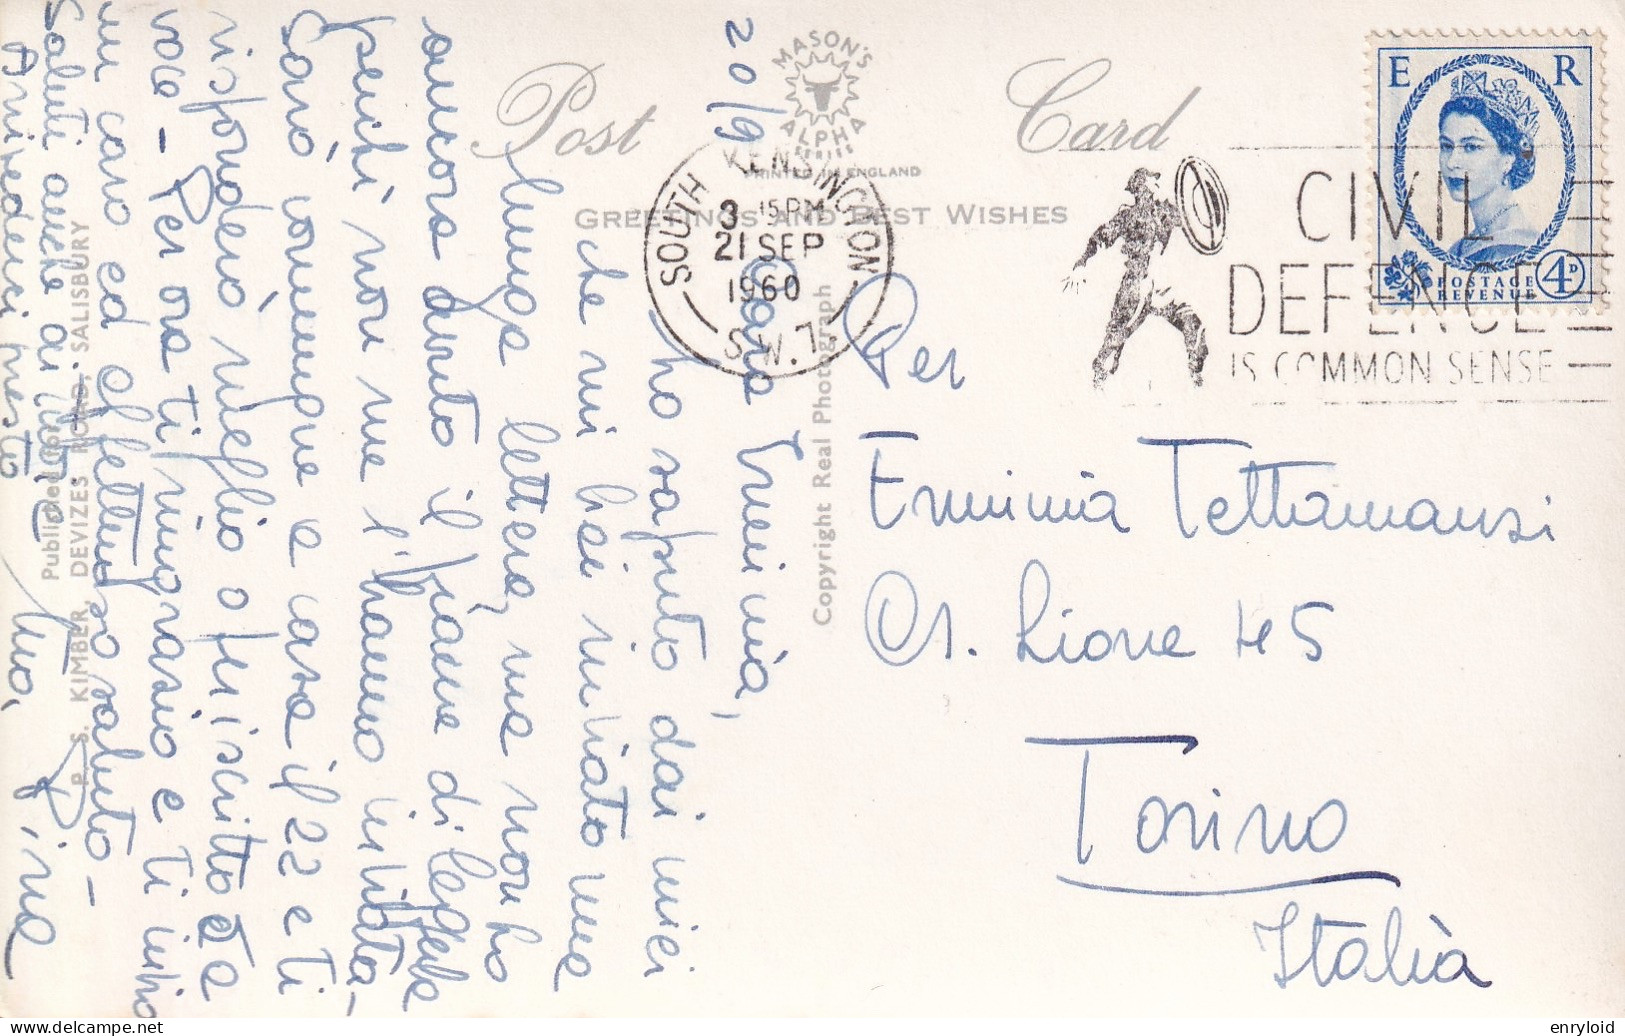 Post Card
MASON'S
ALPHA
SERIES
PRINTED IN ENGLAND
GREETINGS AND BEST WISHES
SOUTH KENSINGTON
3 15 PM
21 SEP
1960
S.W.7
CIVIL
DEFENCE
IS COMMON SENSE
E R
POSTAGE
REVENUE
4D
Copyright Real Photograph
Published from
P. S. KIMBER, DEVIZES ROAD, SALISBURY
20/9
Cara Erminia,
ho saputo dai miei
che mi hai inviato una
lunga lettera, ma non ho
ancora avuto il piacere di leggerla
perché non me l'hanno inviata-
Sarò comunque a casa il 22 e ti
risponderò meglio o per iscritto o a
voce - Per ora ti ringrazio e ti invio
un caro ed affettuoso saluto -
Saluti anche ai tuoi,
Arrivederci presto
Pina
Per
Erminia Tettamanzi
Lione 45
Torino
Italia
enryloid